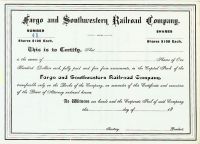 Fargo and Southwestern Railroad Company.
NUMBER
SHARES
Shares $100 Each.
Shares $100 Each.
This is to Certify, That
is the owner of Shares of One
Hundred Dollars each, fully paid, and free from assessments, in the Capital Stock of the
Fargo and Southwestern Railroad Company,
transferable only on the Books of the Company, on surrender of this Certificate and execution
of the Power of Attorney endorsed hereon.
In Witness our hands and the Corporate Seal of said Company
this day of 18
Secretary. President.